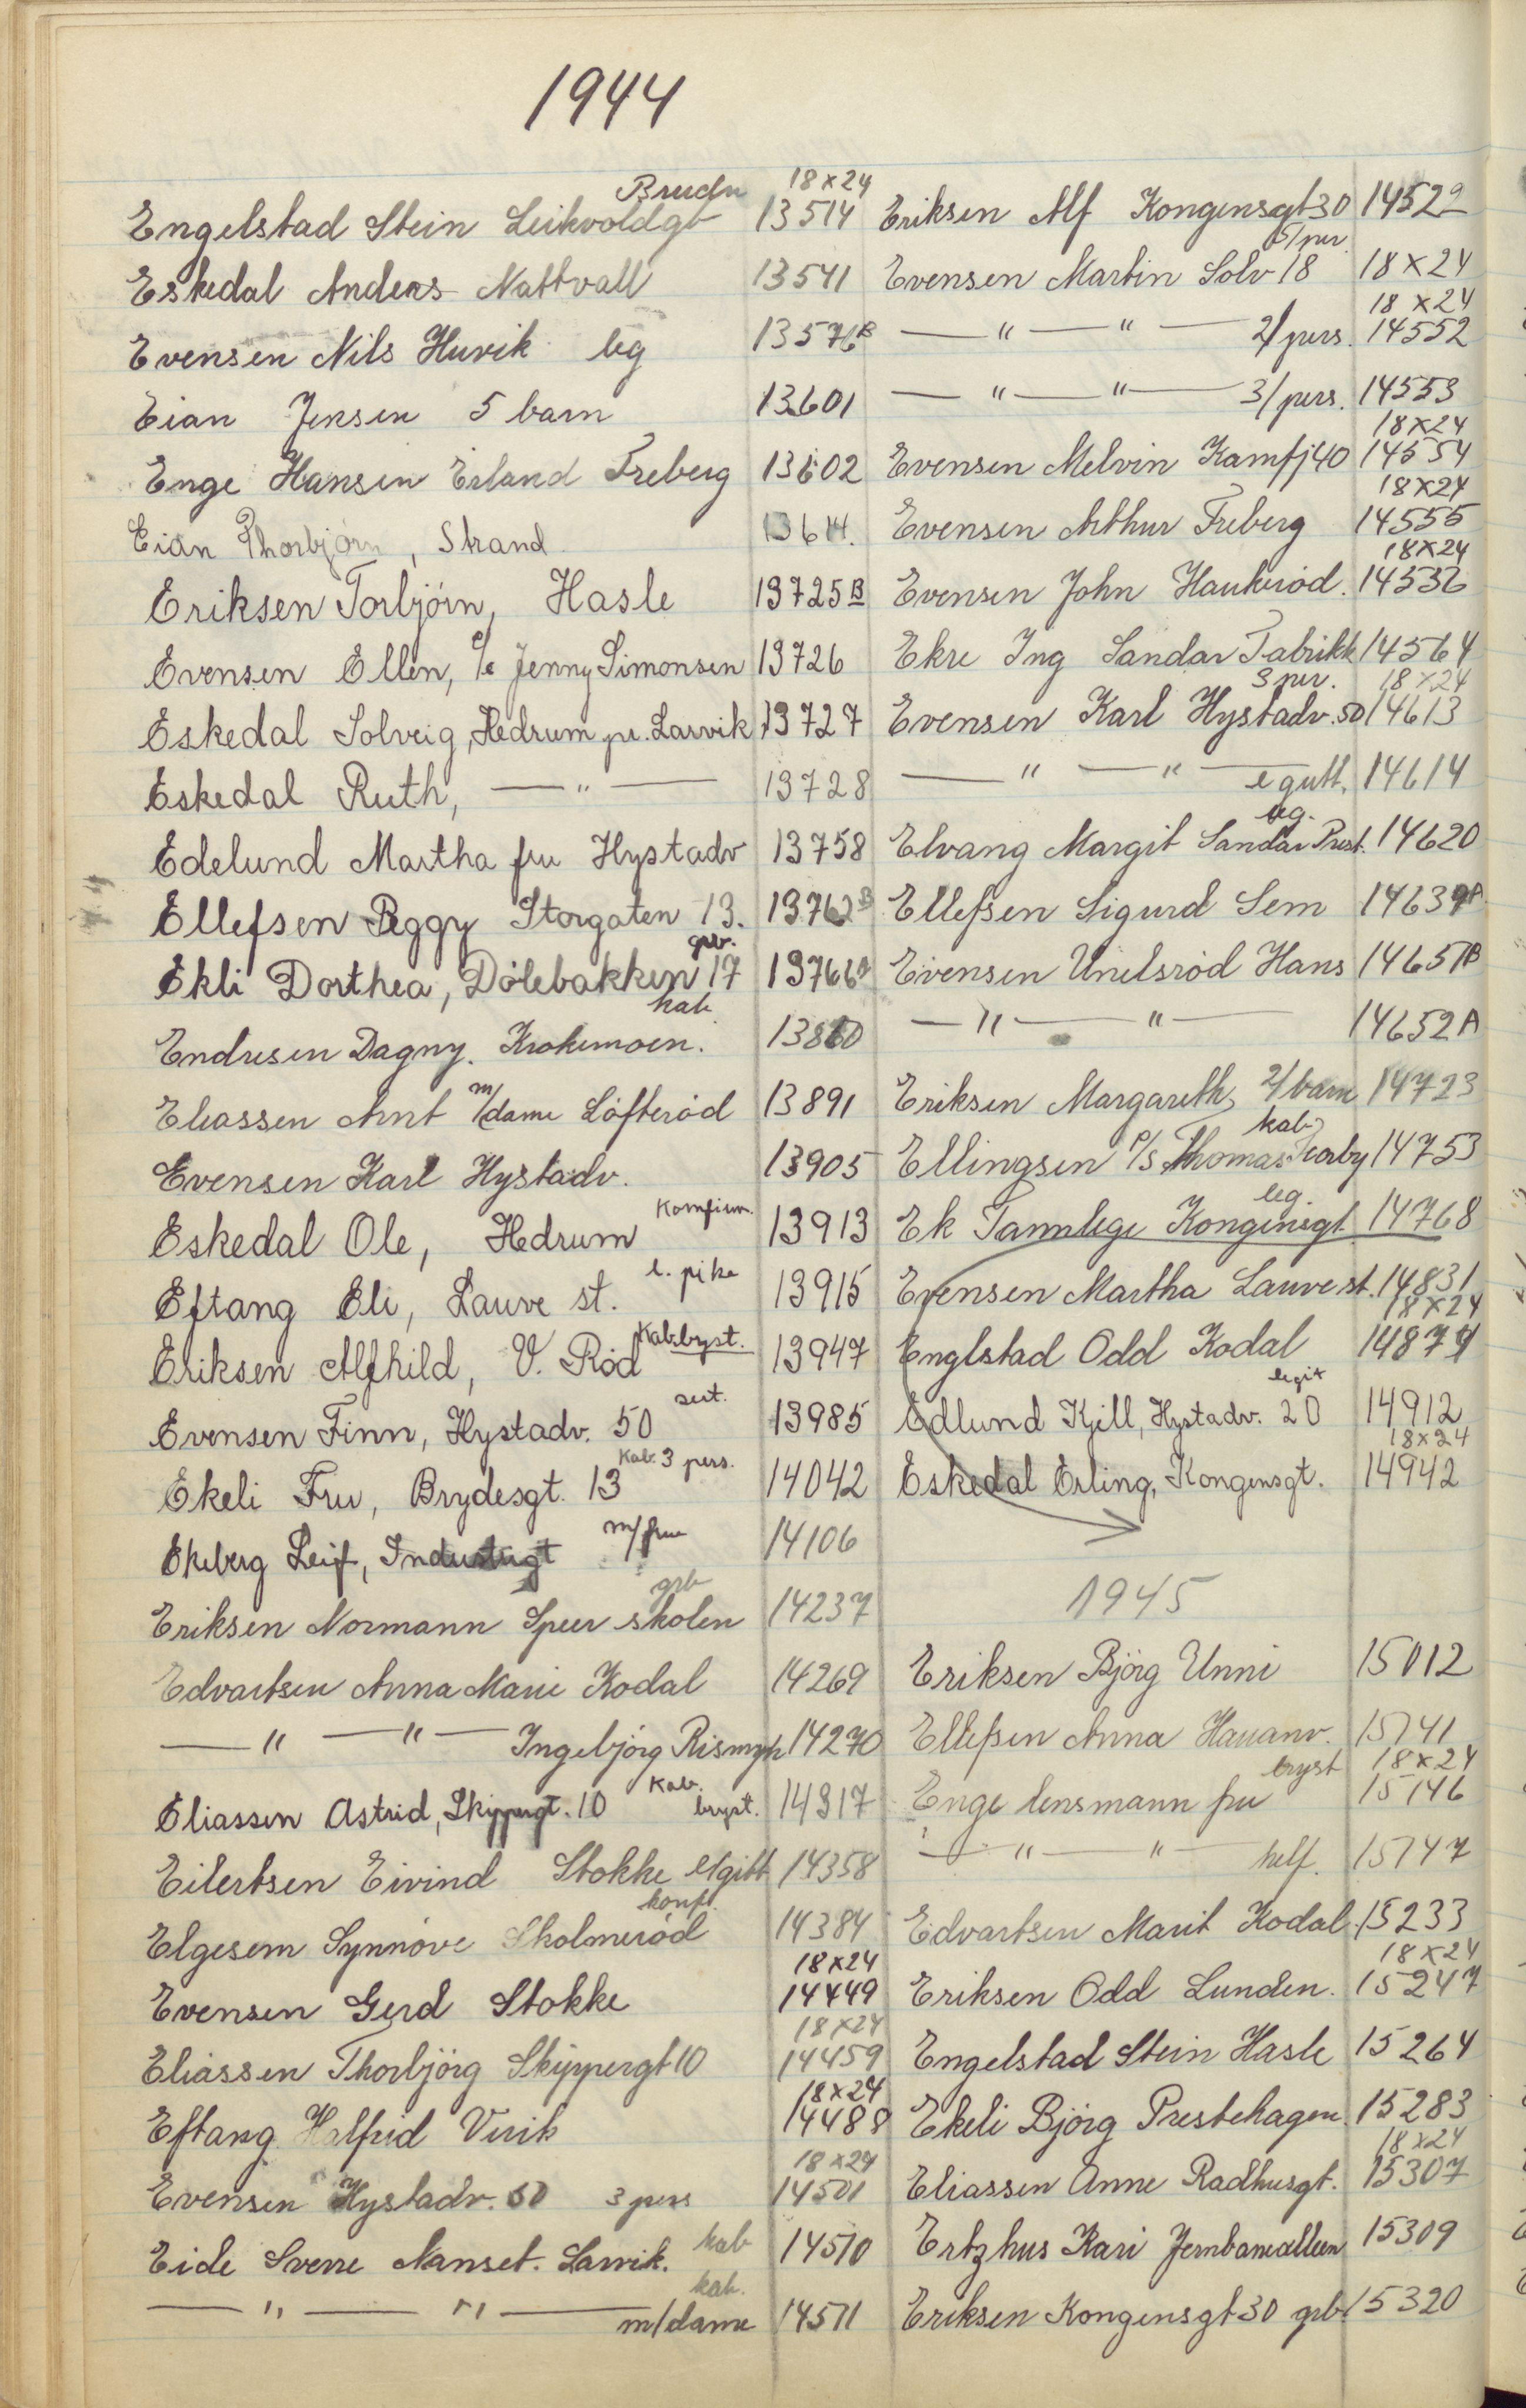 1944
Brudn 18×24
Engelstad Stein Leikvoldgt 13514
Eskedal Anders Nattvall 13541
Evensen Nils Huvik leg 13576B
Eian Jensen 5 barn 13601
Enge Hansen Erland Freberg 13602
Eian Thorbjørn, Strand 13614.
Eriksen Torbjörn, Hasle 13725B
Evensen Ellen, c/o Jenny Simonsen 13726
Eskedal Solveig, Hedrum pr. Larvik 13727
Eskedal Ruth, —"— 13728
Edelund Martha fru Hystadv 13758
Ellefsen Peggy Storgaten 13. 13762B
grb.
Ekli Dorthea, Dölebakken 17 13766
kab.
Endresen Dagny. Krokemoen. 13860
Eliassen Arnt m/dame Löfteröd 13891
Evensen Karl Hystadv. 13905
Eskedal Ole, Hedrum Komfirm. 13913
Eftang Eli, Lauve st. l. pike 13915
Eriksen Alfhild, V. Röd Kab.byst. 13947
Evensen Finn, Hystadv. 50 sert. 13985
Ekeli Fru, Brydesgt. 13 Kab. 3 pers. 14042
Ekeberg Leif, Industrigt m/frue 14106
grb
Eriksen Normann Speer skolen 14237
Edvartsen Anna Marie Kodal 14269
—"—"— Ingebjörg Rismyh 14270
Eliassen Astrid, Skippergt. 10 Kab. bryst. 14317
Eilertsen Eivind Stokke e/gitt 14358
konf.
Elgesem Synnöve Skolmeröd 14384
18×24
Evensen Gerd Stokke 14449
18×24
Eliassen Thorbjörg Skippergt 10 14459
18×24
Eftang Halfrid Virik 14488
18×24
Evensen Hystadv. 50 3 pers 14501
Eide Sverre Nanset. Larvik. kab 14510
kab.
—"—"— m/dame 14511
Eriksen Alf Kongensgt 30 14522
5/per.
Evensen Martin Solv 18 18×24
18×24
—"—"— 2/pers. 14552
—"—"— 3/pers. 14553
18×24
Evensen Melvin Kamfj 40 14554
18×24
Evensen Arthur Freberg 14555
18×24
Evensen John Haukeröd. 14556
Ekre Ing Sandar Fabrikk 14564
3 per. 18×24
Evensen Karl Hystadv. 50 14613
—"—"— e gutt. 14614
leg.
Elvang Margit Sandar Prest. 14620
Ellefsen Sigurd Sem 14639A
Evensen Unelsröd Hans 14651B
—"—"— 14652A
Eriksen Margareth, 2/barn 14723
kab
Ellingsen P/S Thomas Fearby 14753
leg.
Ek Tannlege Kongensgt 14768
Evensen Martha Lauve st. 14831
18×24
Englstad Odd Kodal 14874
legit
Edlund Kjell, Hystadv. 20 14912
18×24
Eskedal Erling, Kongensgt. 14942
1945
Eriksen Björg Unni 15012
Ellefsen Anna Hauanv. 15141
bryst 18×24
Enge lensmann fru 15146
—"—"— helf. 15147
Edvartsen Marit Kodal. 15233
18×24
Eriksen Odd Lunden. 15247
Engelstad Stein Hasle 15264
Ekeli Björg Prestehagen. 15283
18×24
Eliassen Anne Radhusgt. 15307
Ertzhus Kari Jernbanealleen 15309
Eriksen Kongensgt 30 grb 15320